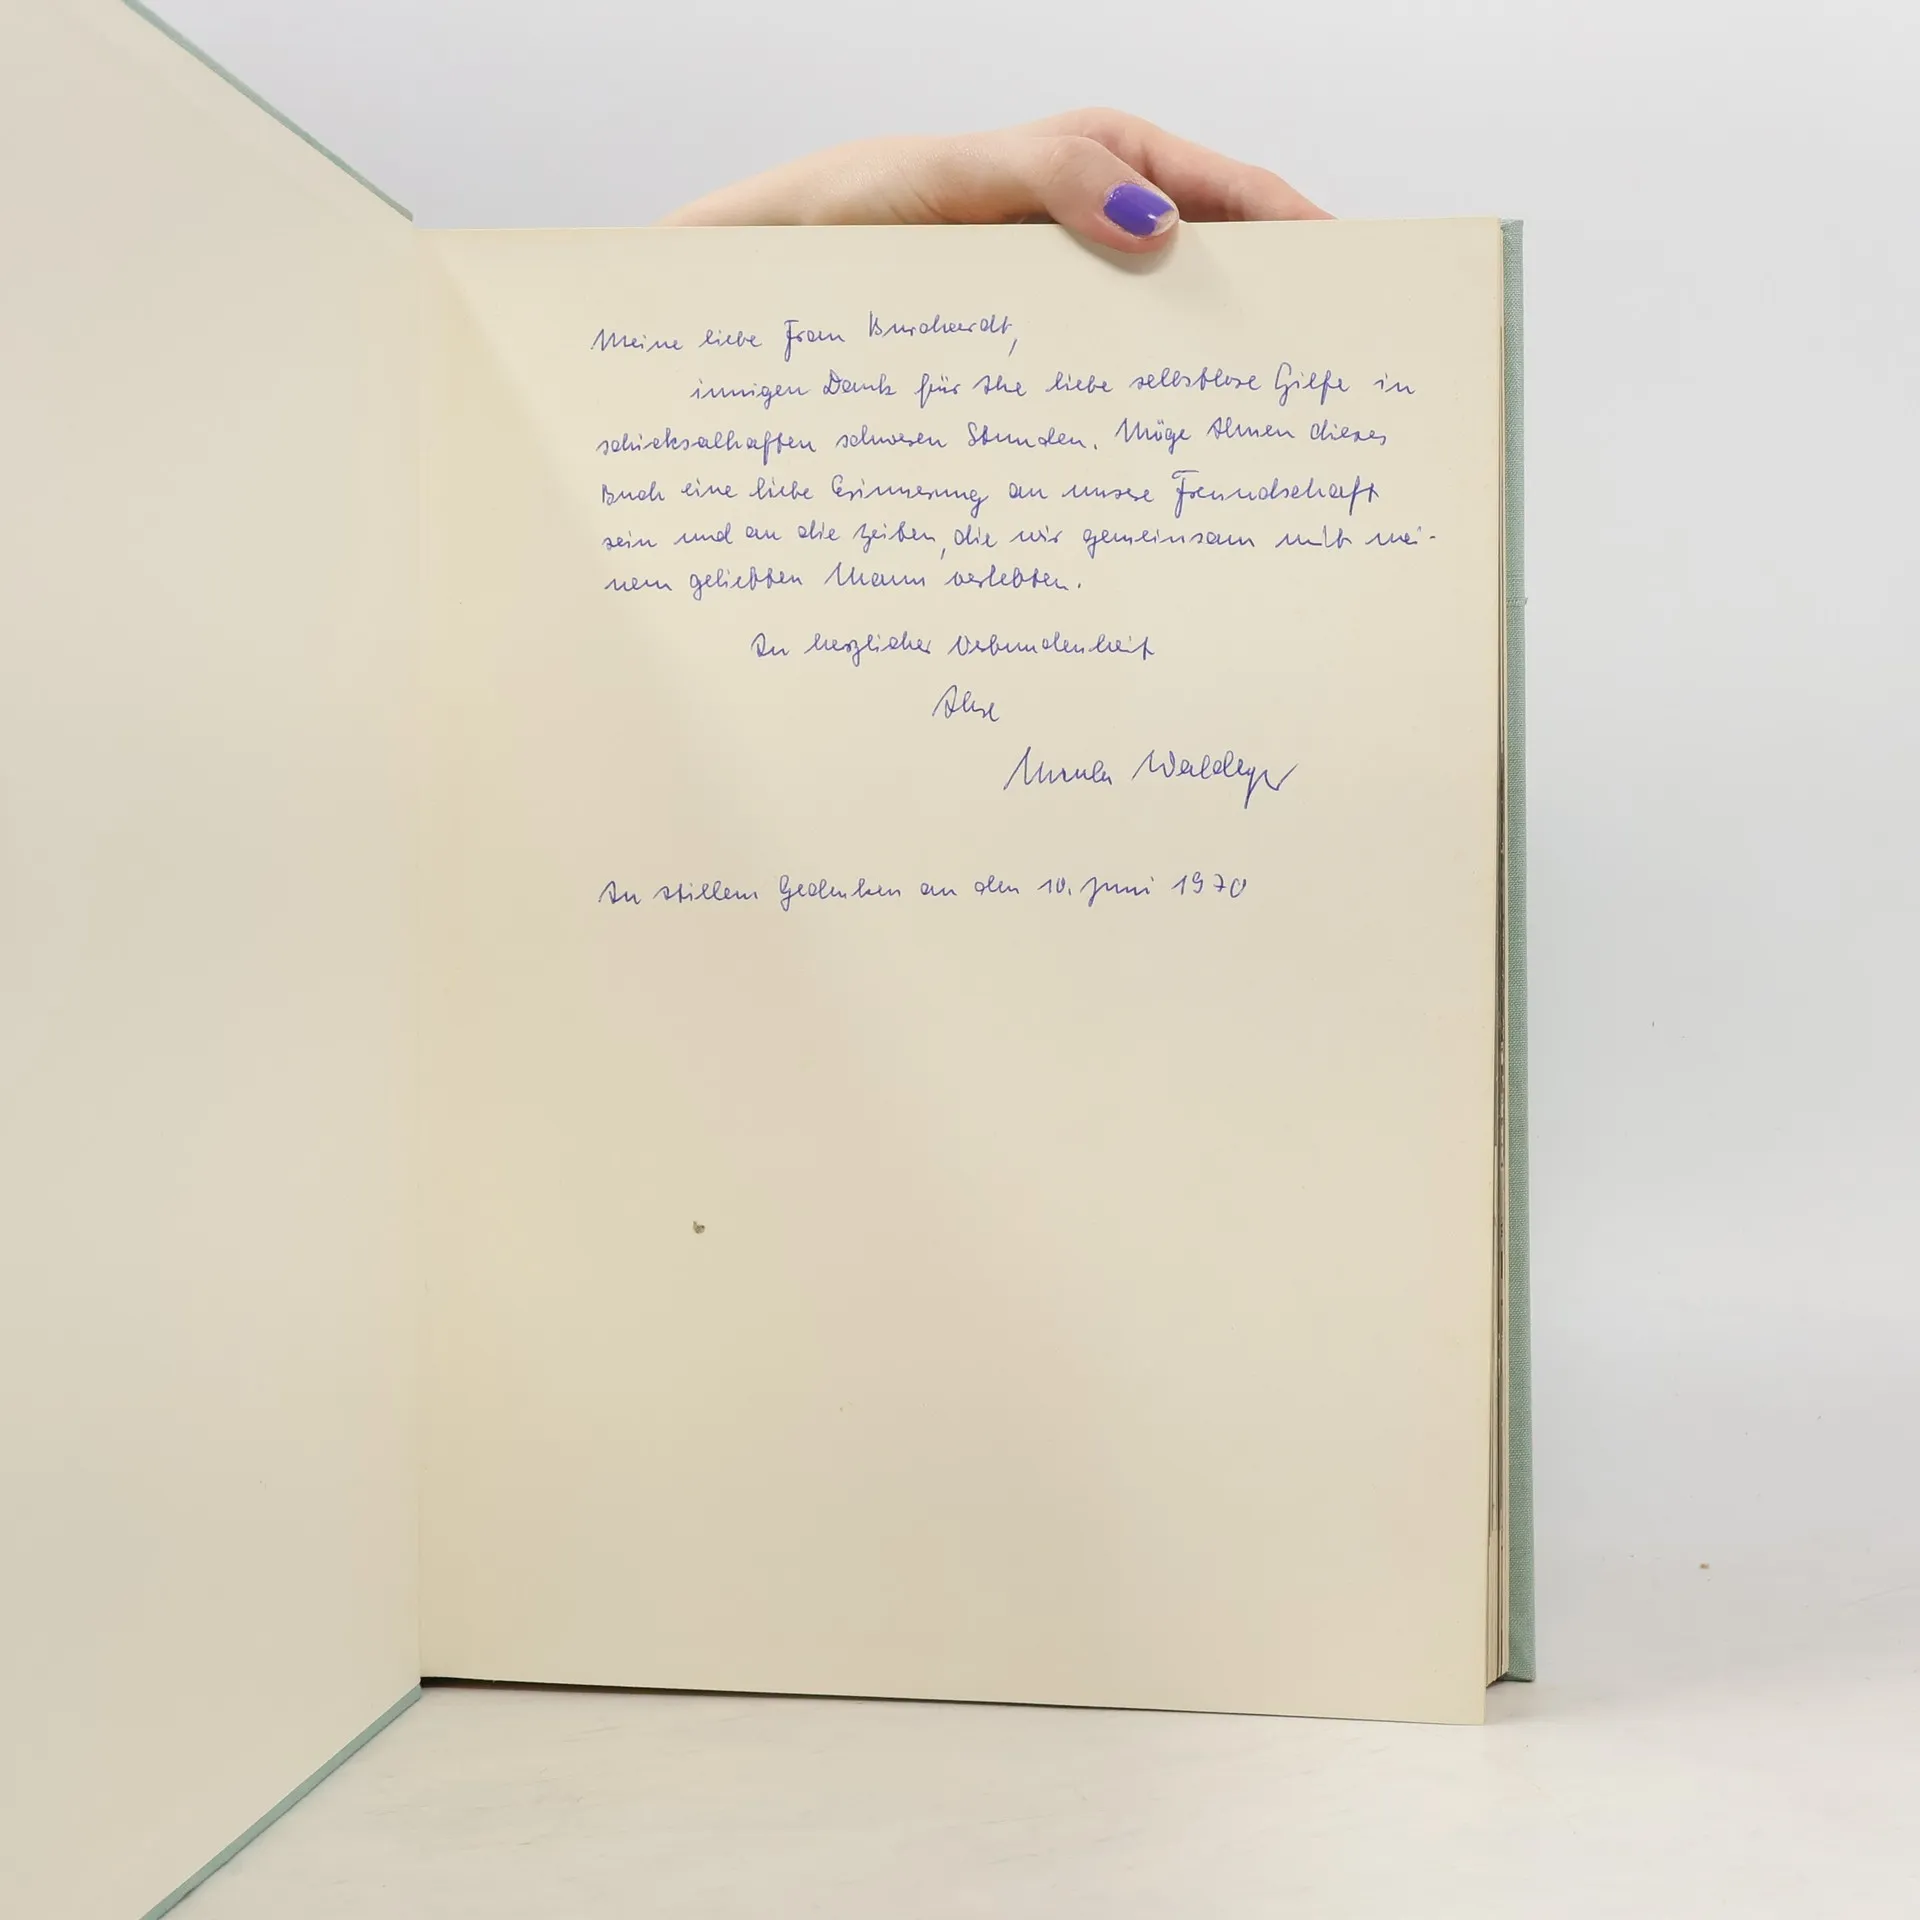 Meine liebe Frau Burchardt,
innigen Dank für Ihre liebe selbstlose Hilfe in
schicksalhaften schweren Stunden. Möge Ihnen dieses
Buch eine liebe Erinnerung an unsere Freundschaft
sein und an die Zeiten, die wir gemeinsam mit mei-
nem geliebten Mann verlebten.
In herzlicher Verbundenheit
Ihre
Ursula
In stillem Gedenken an den 10. Juni 1970